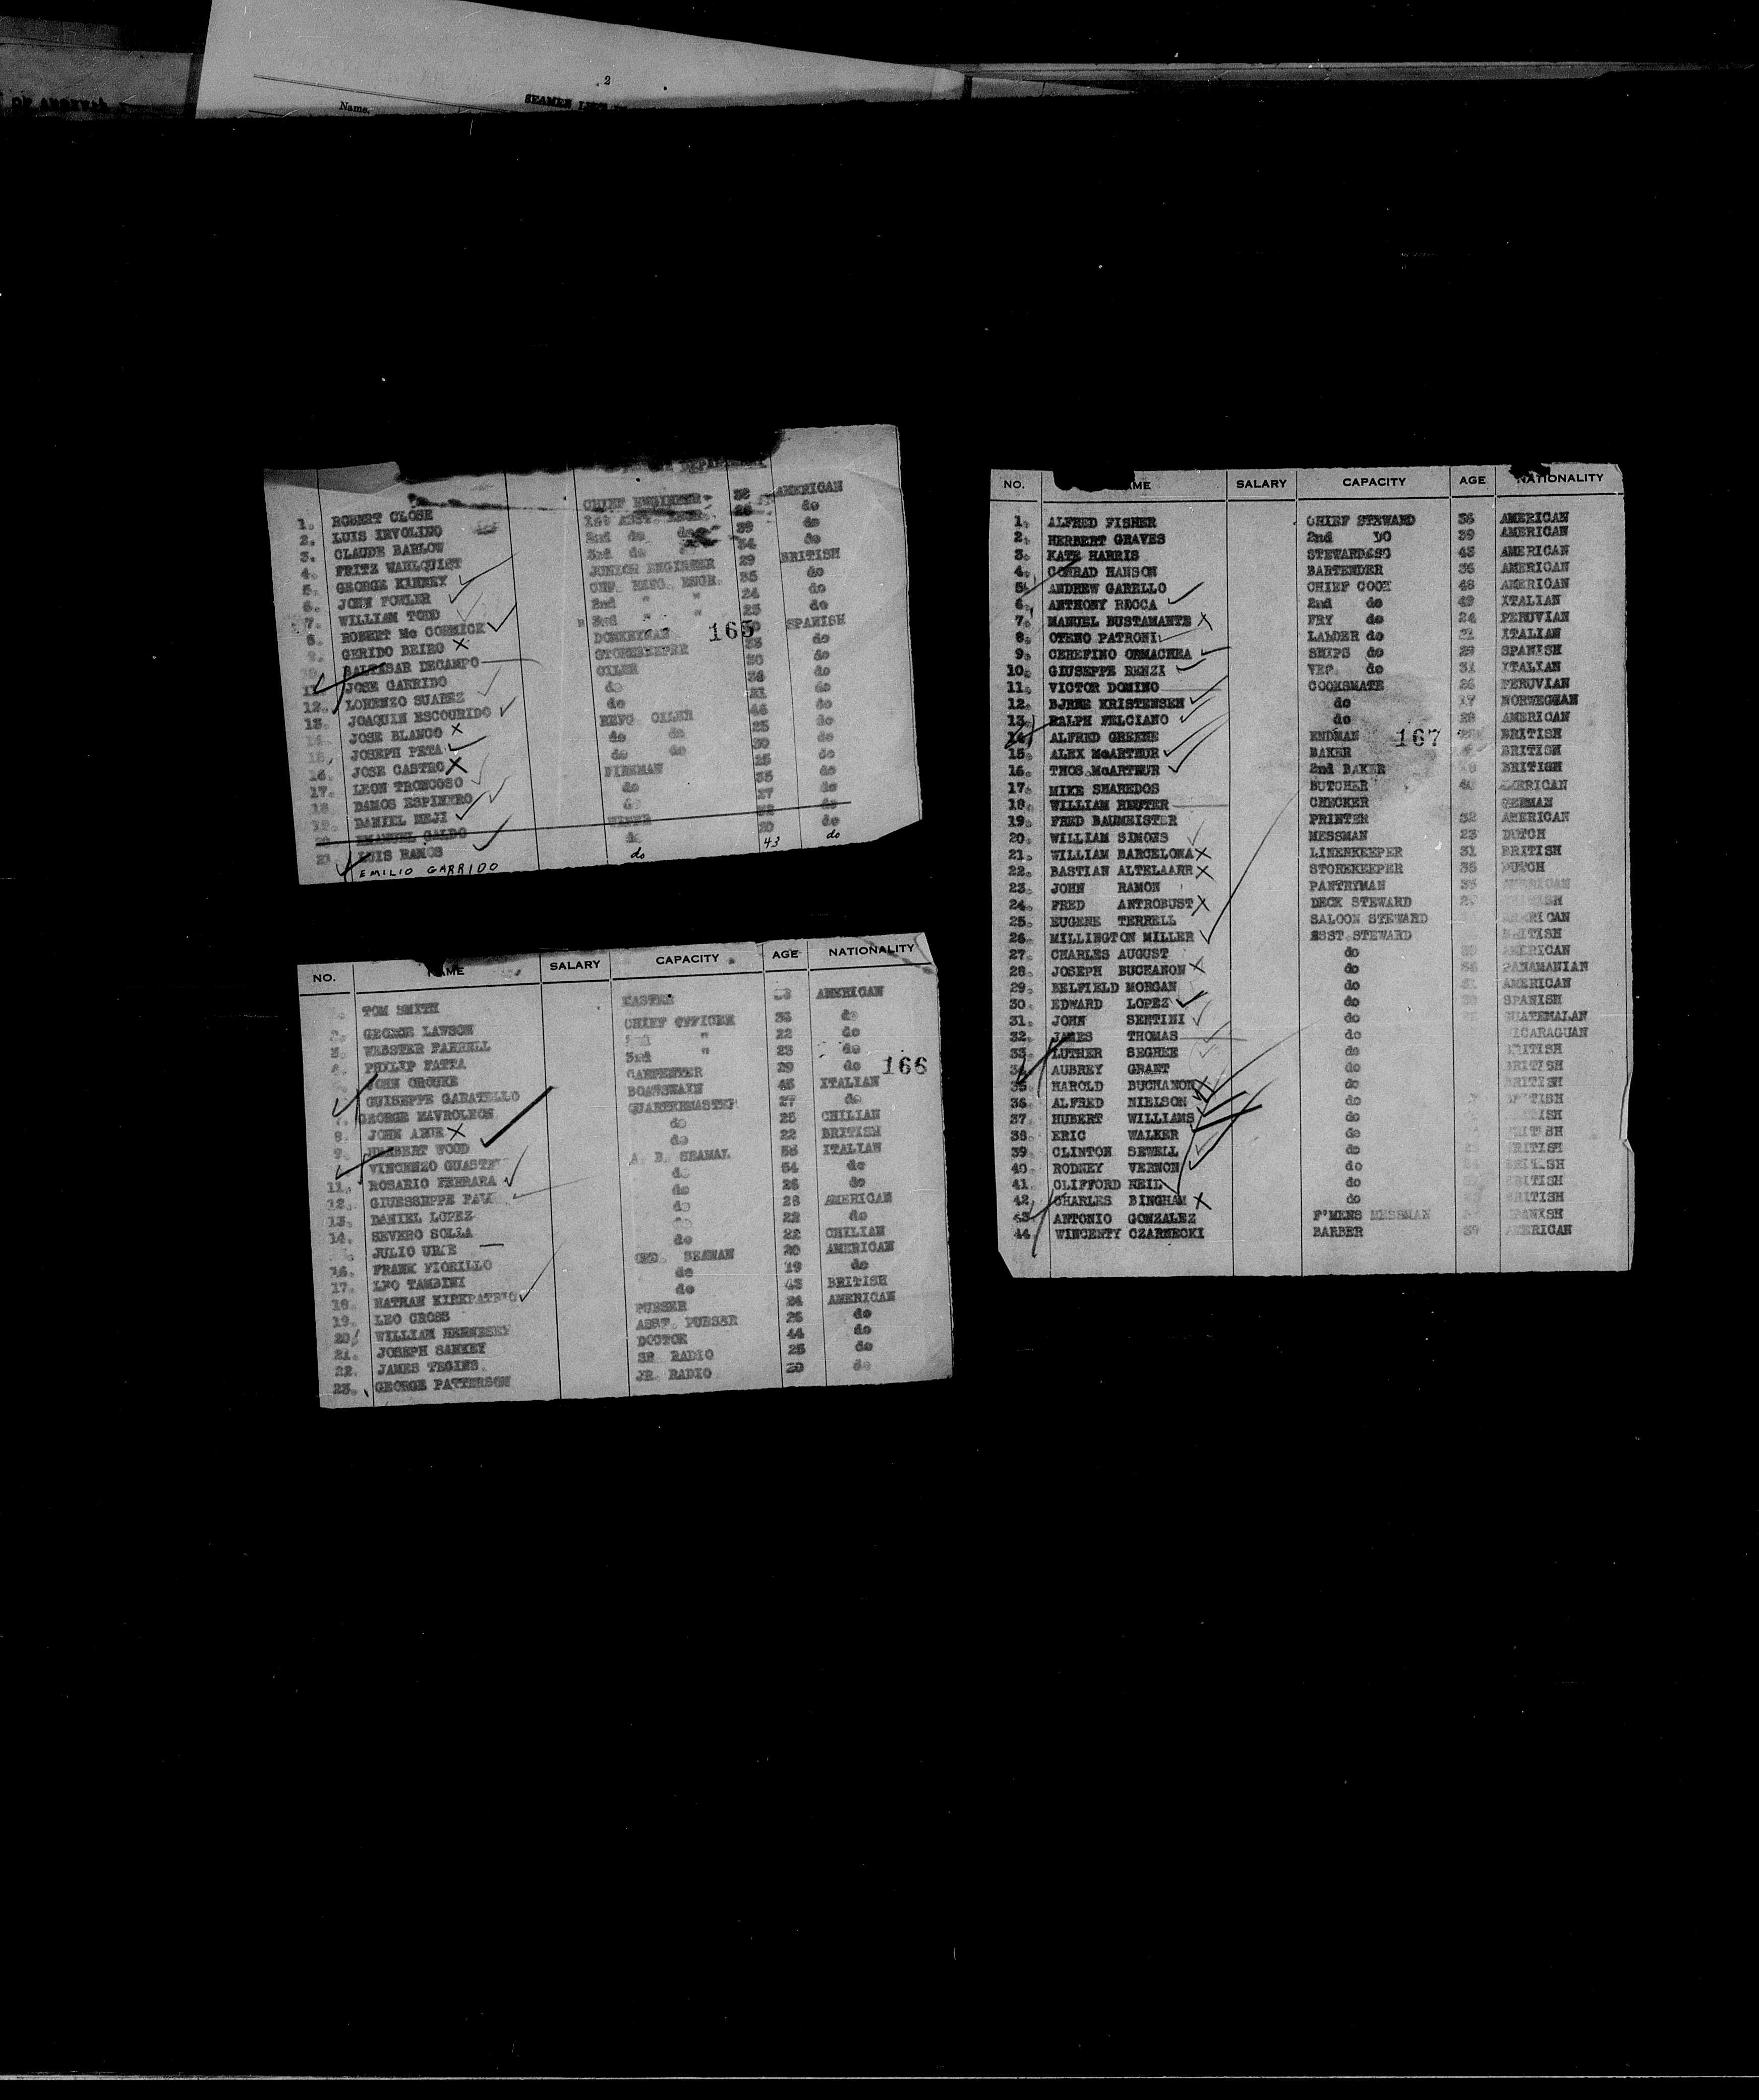 2
SEAMEN
Name.
DEPARTMENT
1. ROBERT CLOSE CHIEF ENGINEER 38 AMERICAN
2. LUIS IRVOLINO 1st ASST. ENGR. do
3. CLAUDE BARLOW 2nd do do 39 do
4. FRITZ WAHLQUIST 3rd do 34 do
5. GEORGE KINNEY JUNIOR ENGINEER 29 BRITISH
6. JOHN FOWLER CHF. REFG. ENGR. 35 do
7. WILLIAM TODD 2nd " " 24 do
8. ROBERT Mc CORMICK 3rd " " 25 do
9. GERIDO BRIEO X DONKEYMAN SPANISH
165
10. BALTASAR DECAMPO STOREKEEPER 33 do
11. JOSE GARRIDO OILER 30 do
12. LORENZO SUAREZ do 36 do
13. JOAQUIN ESCOURIDO do 21 do
14. JOSE BLANCO X REFG OILER 46 do
15. JOSEPH PETA do do 25 do
16. JOSE CASTRO X do do 30 do
17. LEON TRONCOSO FIREMAN 25 do
18. RAMOS ESPINERO do 35 do
19. DANIEL MEJI do 27 do
20. EMANUEL GALDO WIPER 32 do
21. LUIS RAMOS do 20 do
EMILIO GARRIDO do 43 do
NO. NAME SALARY CAPACITY AGE NATIONALITY
TOM SMITH MASTER AMERICAN
2. GEORGE LAWSON CHIEF OFFICER 33 do
3. WEBSTER FARRELL 2nd " 22 do
4. PHILIP FATTA 3rd " 23 do
JOHN OROURE CARPENTER 29 do
166
GUISEPPE GABATELLO BOATSWAIN 45 ITALIAN
7. GEORGE MAVROLEON QUARTERMASTER 27 do
8. JOHN AZUR X do 25 CHILIAN
9. HERBERT WOOD do 22 BRITISH
VINCENZO GUASTE A. B. SEAMAN 38 ITALIAN
11. ROSARIO FERRARA do 34 do
12. GIUESSEPPE do 26 do
13. DANIEL LOPEZ do 28 AMERICAN
14. SEVERO SOLLA do 22 do
JULIO do 22 CHILIAN
16. FRANK FIORILLO ORD. SEAMAN 20 AMERICAN
17. LEO TAMBINI do 19 do
18. NATHAN KIRKPATRIC do 43 BRITISH
19. LEO CROSS PURSER 24 AMERICAN
20. WILLIAM HENNESEY ASST. PURSER 26 do
21. JOSEPH SANKEY DOCTOR 44 do
22. JAMES TEGINS SR. RADIO 25 do
23. GEORGE PATTERSON JR. RADIO 20 do
NO. NAME SALARY CAPACITY AGE NATIONALITY
1. ALFRED FISHER CHIEF STEWARD 36 AMERICAN
2. HERBERT GRAVES 2nd DO 39 AMERICAN
3. KATE HARRIS STEWARDESS 43 AMERICAN
4. CONRAD HANSON BARTENDER 36 AMERICAN
5. ANDREW GARELLO CHIEF COOK 48 AMERICAN
6. ANTHONY ROCCA 2nd do 49 ITALIAN
7. MANUEL BUSTAMANTE X FRY do 24 PERUVIAN
8. OTENO PATRONI LARDER do 21 ITALIAN
9. CEREFINO ORMACHEA SHIPS do 29 SPANISH
10. GIUSEPPE RENZI VEG. do 31 ITALIAN
11. VICTOR DOMINO COOKSMATE 26 PERUVIAN
12. BJRNE KRISTENSEN do 17 NORWEGIAN
13. RALPH FELCIANO do 28 AMERICAN
14. ALFRED GREENE ENDMAN BRITISH
167
15. ALEX McARTHUR BAKER BRITISH
16. THOS. McARTHUR 2nd BAKER BRITISH
17. MIKE SHAREDOS BUTCHER AMERICAN
18. WILLIAM REUTER CHECKER GERMAN
19. FRED BAUMEISTER PRINTER 32 AMERICAN
20. WILLIAM SIMONS MESSMAN 23 DUTCH
21. WILLIAM BARCELONA X LINENKEEPER 31 BRITISH
22. BASTIAN ALTELAARR X STOREKEEPER 35 DUTCH
23. JOHN RAMON PANTRYMAN 35 AMERICAN
24. FRED ANTROBUST X DECK STEWARD BRITISH
25. EUGENE TERRELL SALOON STEWARD AMERICAN
26. MILLINGTON MILLER ASST. STEWARD BRITISH
27. CHARLES AUGUST do AMERICAN
28. JOSEPH BUCHANON X do PANAMANIAN
29. BELFIELD MORGAN do AMERICAN
30. EDWARD LOPEZ do SPANISH
31. JOHN SENTINI do GUATEMALAN
32. JAMES THOMAS do NICARAGUAN
33. LUTHER SEGREE do BRITISH
34. AUBREY GRANT do BRITISH
35. HAROLD BUCHANON do BRITISH
36. ALFRED NIELSON do BRITISH
37. HUBERT WILLIAMS do BRITISH
38. ERIC WALKER do BRITISH
39. CLINTON SEWELL do BRITISH
40. RODNEY VERNON do BRITISH
41. CLIFFORD NEIL do BRITISH
42. CHARLES BINGHAM X do BRITISH
43. ANTONIO GONZALEZ F'MENS MESSMAN SPANISH
44. WINCENTY CZARNECKI BARBER 39 AMERICAN